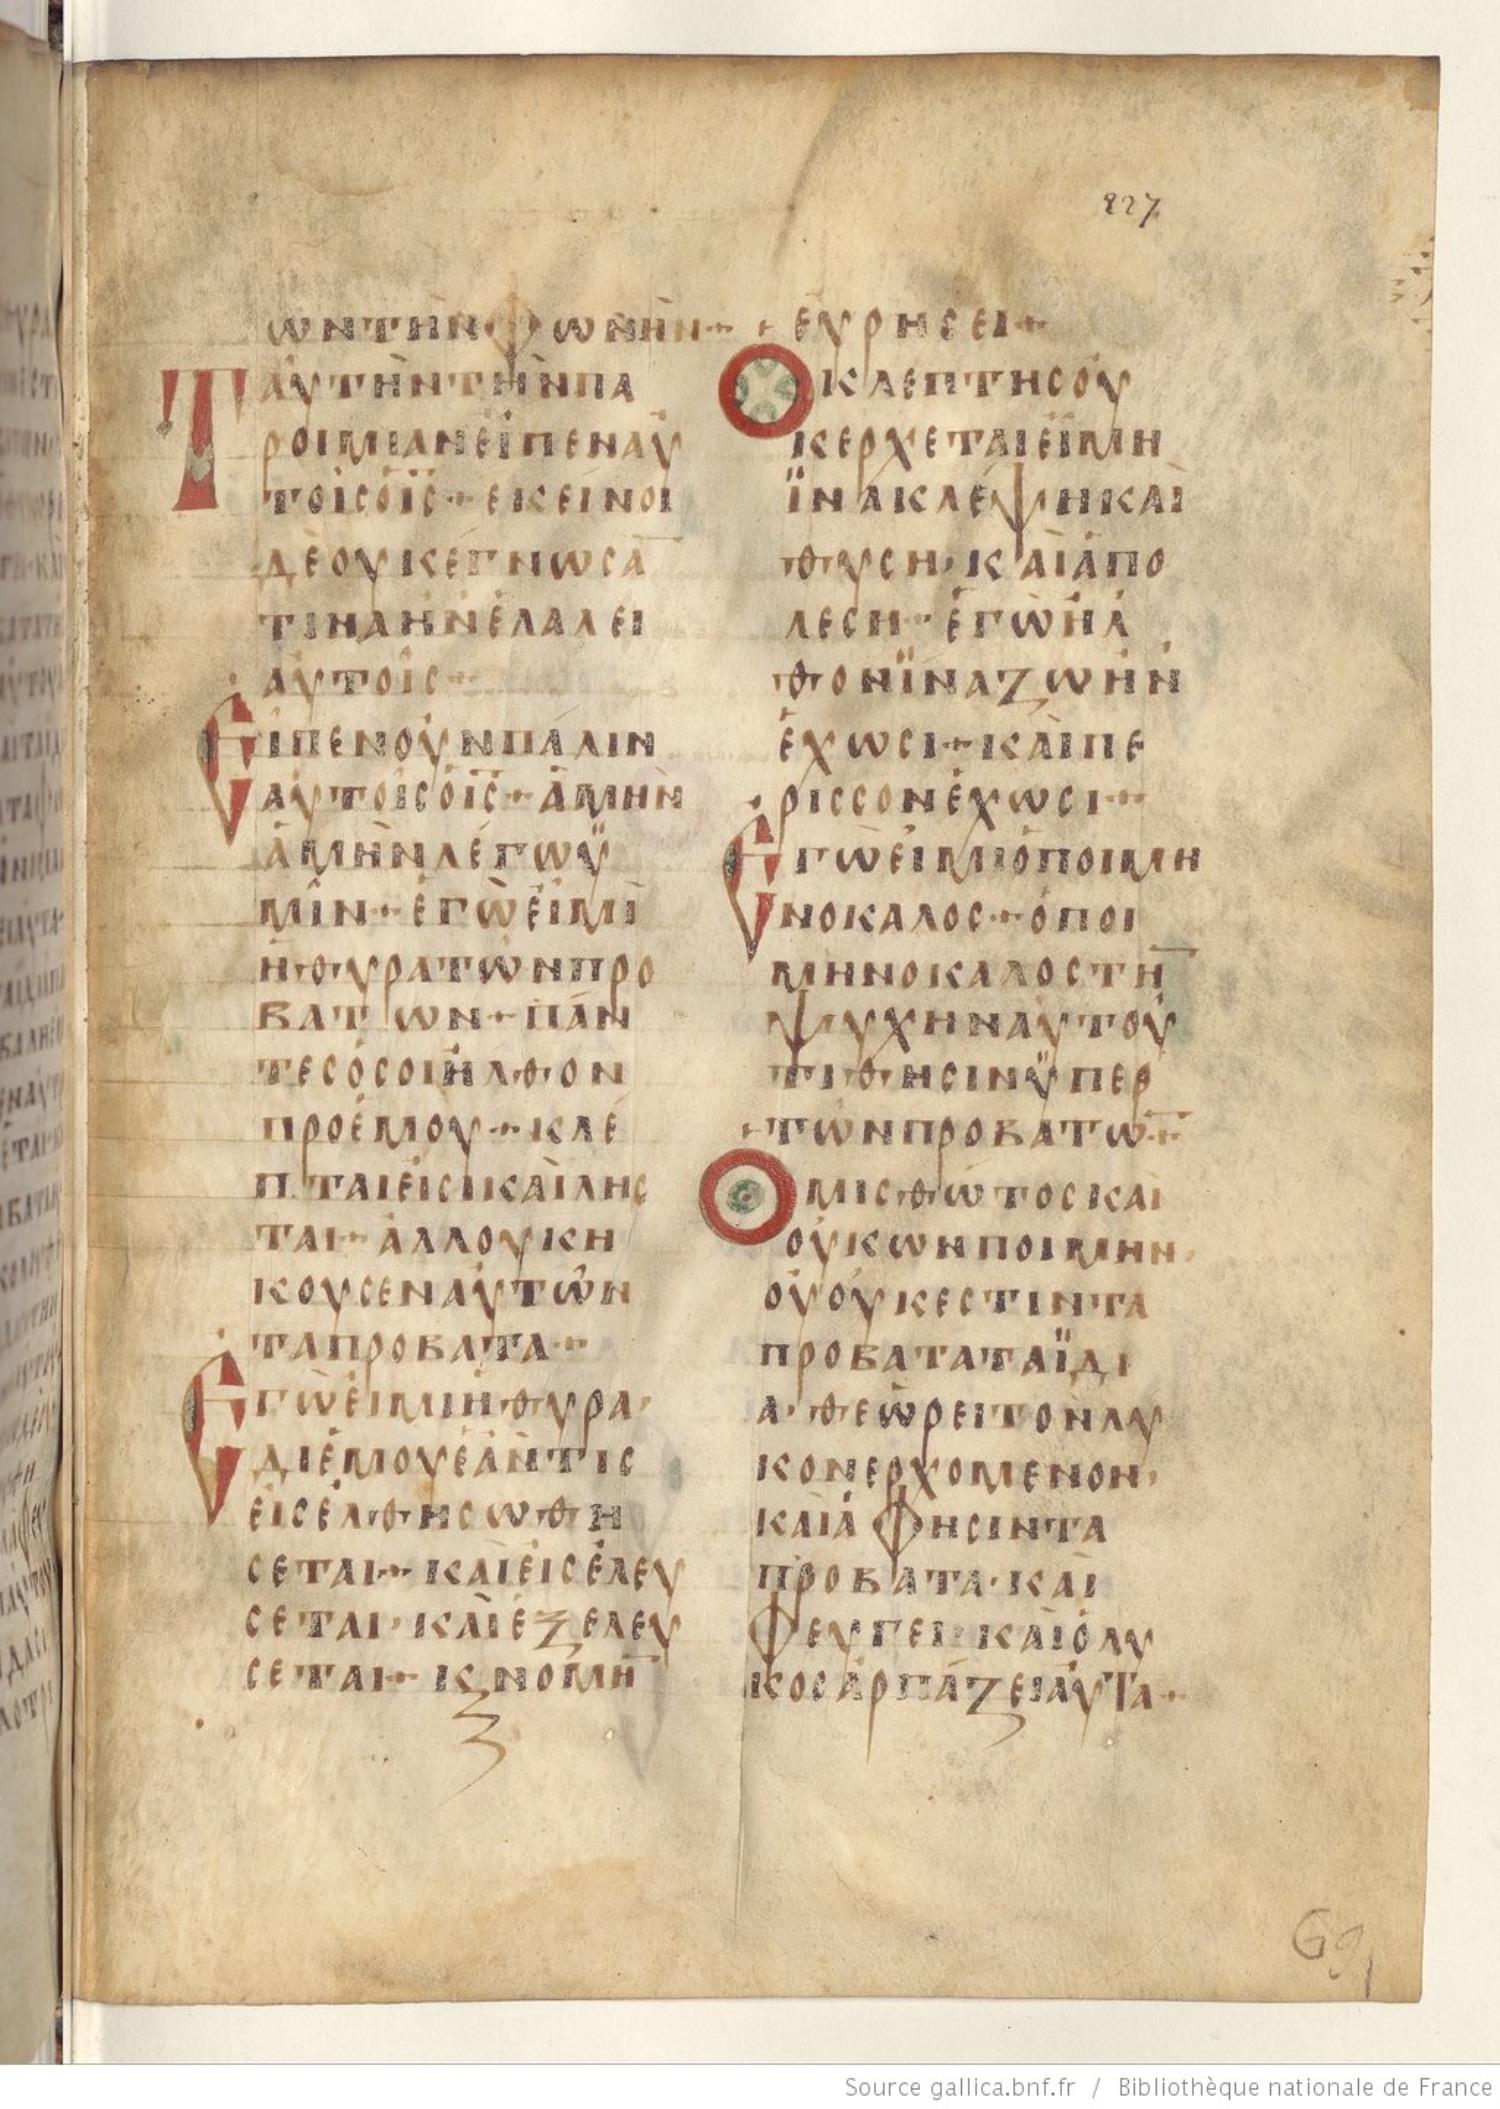 827
ΩΝΤῊΝΦΩΝῊΝ·
ΑΥ̓ΤῊΝΤῊΝΠΑ
ΡΟΙΜΙΑΝΕἸΠΕΝΑΥ
ΤΟΙΣΟἸΣ· ΕΚΕΙΝΟΙ
ΔΕΟΥΚΕΓΝΩΣΑ̅
ΤΙΝΑΗΝΕΛΑΛΕΙ
ΑΥΤΟΙΣ·
ΕΙΠΕΝΟΥΝΠΑΛΙΝ
ΑΥΤΟΙΣΟΙ̅Σ̅· ΑΜΗΝ
ΑΜΗΝΛΕΓΩΫ
ΜΙΝ· ΕΓΩΕΙΜΙ
ΗΘΥΡΑΤΩΝΠΡΟ
ΒΑΤΩΝ· ΠΑΝ
ΤΕΣΟΣΟΙΗΛΘΟΝ
ΠΡΟΕΜΟΥ· ΚΛΕ
ΠΤΑΙΕΙΣΙΚΑΙΛΗΣ
ΤΑΙ· ΑΛΛΟΥΚΗ
ΚΟΥΣΕΝΑΥΤΩΝ
ΤΑΠΡΟΒΑΤΑ·
ΕΓΩΕΙΜΙΗΘΥΡΑ·
ΔΙΕΜΟΥΕΑΝΤΙΣ
ΕΙΣΕΛΘΗΣΩΘΗ
ΣΕΤΑΙ· ΚΑΙΕΙΣΕΛΕΥ
ΣΕΤΑΙ· ΚΑΙΕΞΕΛΕΥ
ΣΕΤΑΙ· Κ̣ΝΟΜΗ̅
ΕΥΡΗΣΕΙ·
ΟΚΛΕΠΤΗΣΟΥ
ΚΕΡΧΕΤΑΙΕΙΜΗ
ΪΝΑΚΛΕΨΗΚΑΙ
ΘΥΣΗ· ΚΑΙΑΠΟ
ΛΕΣΗ· ΕΓΩΗΛ
ΘΟΝΪΝΑΖΩΗΝ
ΕΧΩΣΙ· ΚΑΙΠΕ
ΡΙΣΣΟΝΕΧΩΣΙ·
ΕΓΩΕΙΜΙΟΠΟΙΜΗ
ΝΟΚΑΛΟΣ· ΟΠΟΙ
ΜΗΝΟΚΑΛΟΣΤΗ̅
ΨΥΧΗΝΑΥΤΟΥ
ΤΙΘΗΣΙΝΫΠΕΡ
ΤΩΝΠΡΟΒΑΤΩ̅·
ΟΜΙΣΘΩΤΟΣΚΑΙ
ΟΥΚΩΝΠΟΙΜΗΝ·
ΟΥΟΥΚΕΣΤΙΝΤΑ
ΠΡΟΒΑΤΑΤΑΪΔΙ
Α· ΘΕΩΡΕΙΤΟΝΛΥ
ΚΟΝΕΡΧΟΜΕΝΟΝ·
ΚΑΙΑΦΗΣΙΝΤΑ
ΠΡΟΒΑΤΑ· ΚΑΙ
ΦΕΥΓΕΙ· ΚΑΙΟΛΥ
ΚΟΣΑΡΠΑΖΕΙΑΥΤΑ·
69
Source gallica.bnf.fr / Bibliothèque nationale de France